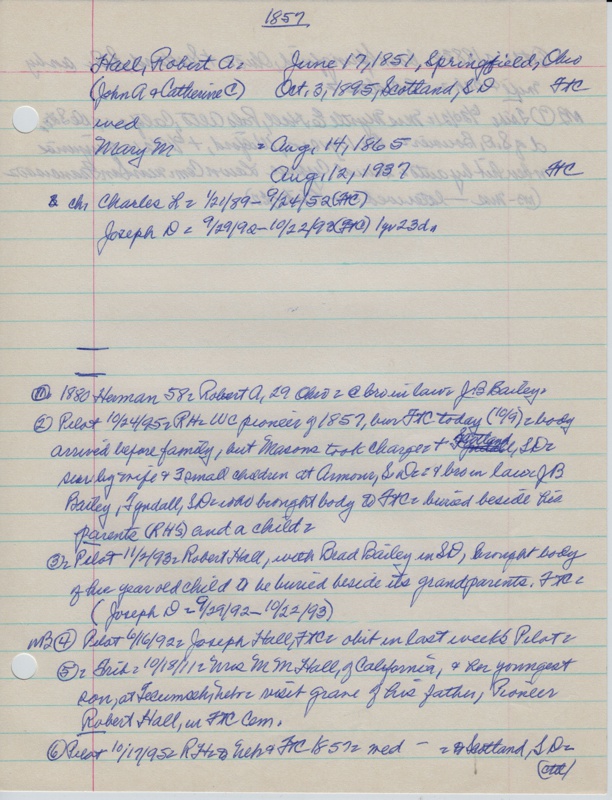 1857
Hall, Robert A = June 17, 1851, Springfield, Ohio
(John A & Catherine C) Oct, 3, 1895, Scotland, SD FTC
wed
Mary M = Aug, 14, 1865
Aug, 12, 1937 FTC
& ch Charles L = 1/21/89 - 9/24/52 (FTC)
Joseph D = 9/29/92 - 10/22/93 (FTC) 1yr 23da
① 1880 Herman 58 = Robert A, 29 Ohio = @ bro in law = J B Bailey,
② Pilot 10/24/95 = RH = WC pioneer of 1857, bur FTC today (10/9) = body
arrived before family, but Masons took charge = + Scotland, SD =
sur by wife & 3 small children at Armour, S D = + bro in law J B
Bailey, Tyndall, SD = who brought body to FTC = buried beside his
parents (RHS) and a child =
③ = Pilot 11/2/93 = Robert Hall, with Brad Bailey in SD, brought body
of his year old child to be buried beside its grandparents. FTC =
(Joseph D = 9/29/92 - 10/22/93)
MB ④ Pilot 6/16/92 = Joseph Hall, FTC = obit in last week's Pilot =
⑤ = Trib = 10/18/11 = Mrs M M Hall, of California, & her youngest
son, at Tecumseh, Nebr = visit grave of his father, Pioneer
Robert Hall, in FTC Cem.
⑥ Pilot 10/17/95 = RH = Neb & FTC 1857 = med - = @ Scotland, S D =
(ctd)